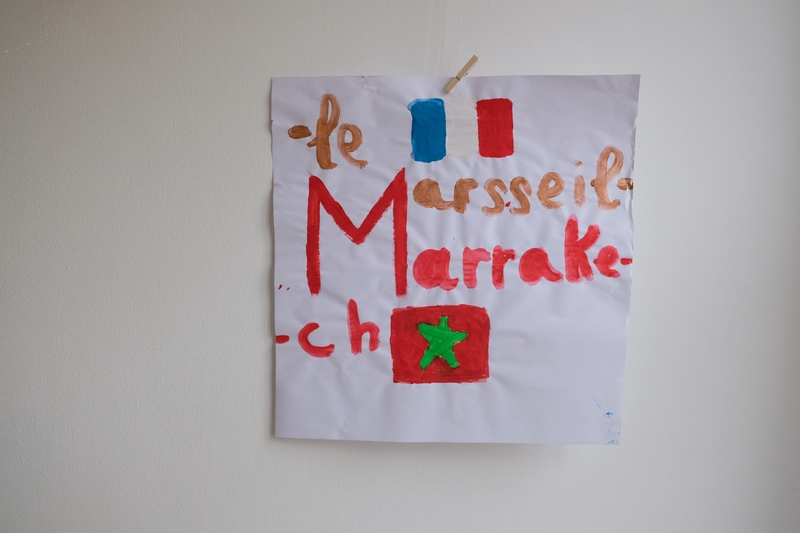 -le
Marsseil-
Marrake-
-ch